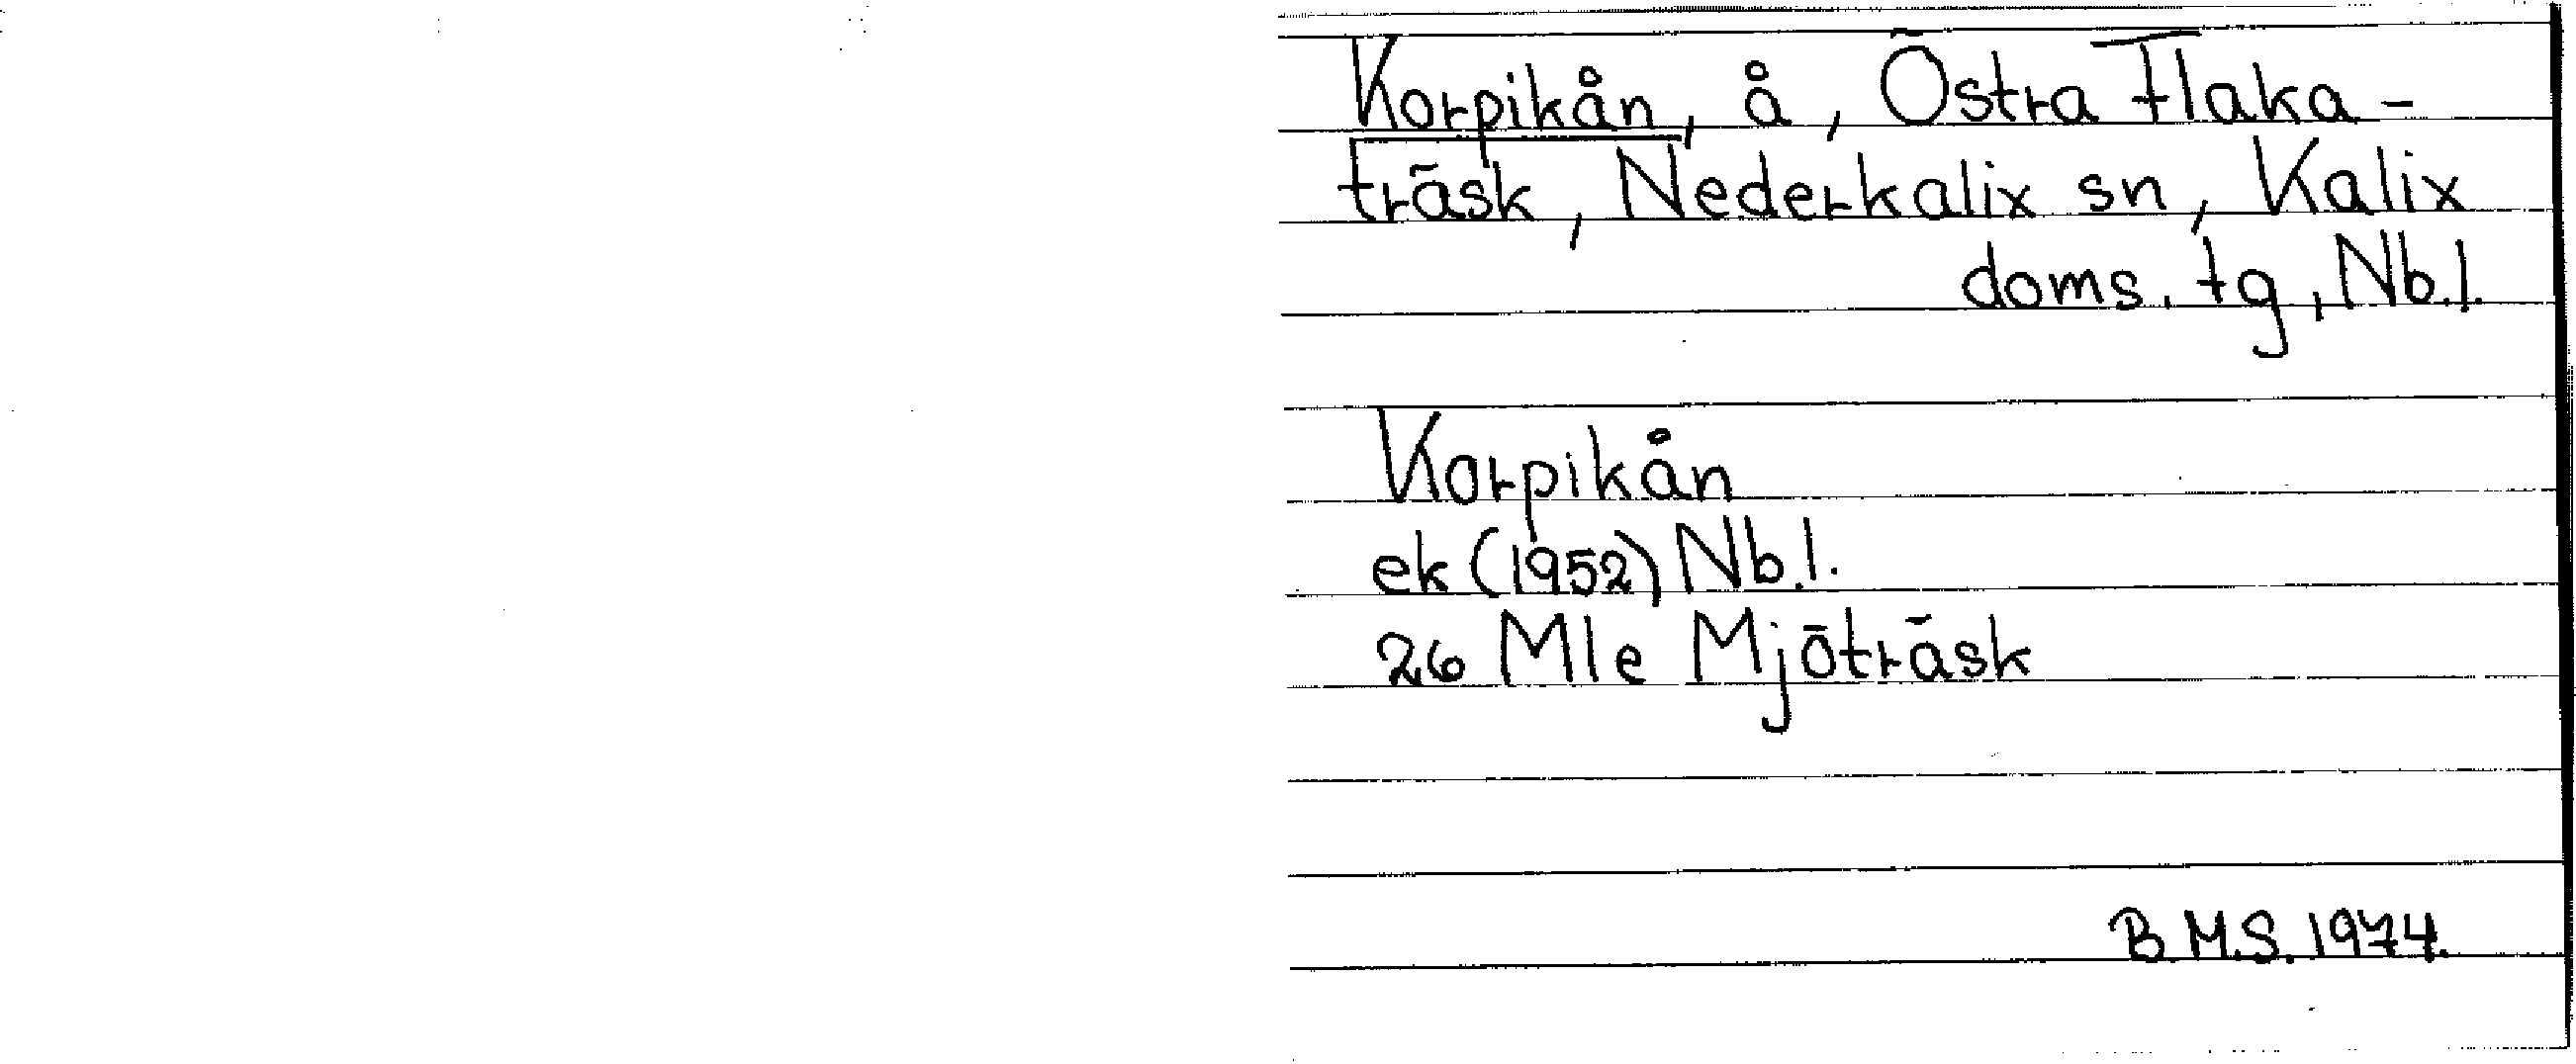 Korpikån, å, Östra Flaka-
träsk, Nederkalix sn, Kalix
doms. tg, Nb.l.
Korpikån
ek (1952) Nb.l.
26 Mle Mjöträsk
B.M.S. 1974.